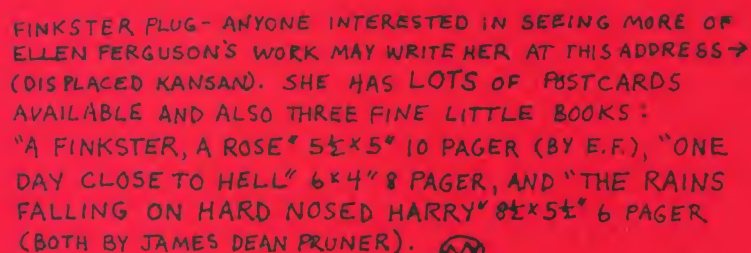 FINKSTER PLUG - ANYONE INTERESTED IN SEEING MORE OF
ELLEN FERGUSON'S WORK MAY WRITE HER AT THIS ADDRESS →
(DISPLACED KANSAN). SHE HAS LOTS OF POSTCARDS
AVAILABLE AND ALSO THREE FINE LITTLE BOOKS:
"A FINKSTER, A ROSE" 5½×5" 10 PAGER (BY E.F.), "ONE
DAY CLOSE TO HELL" 6×4" 8 PAGER, AND "THE RAINS
FALLING ON HARD NOSED HARRY" 8½×5½" 6 PAGER
(BOTH BY JAMES DEAN PRUNER).